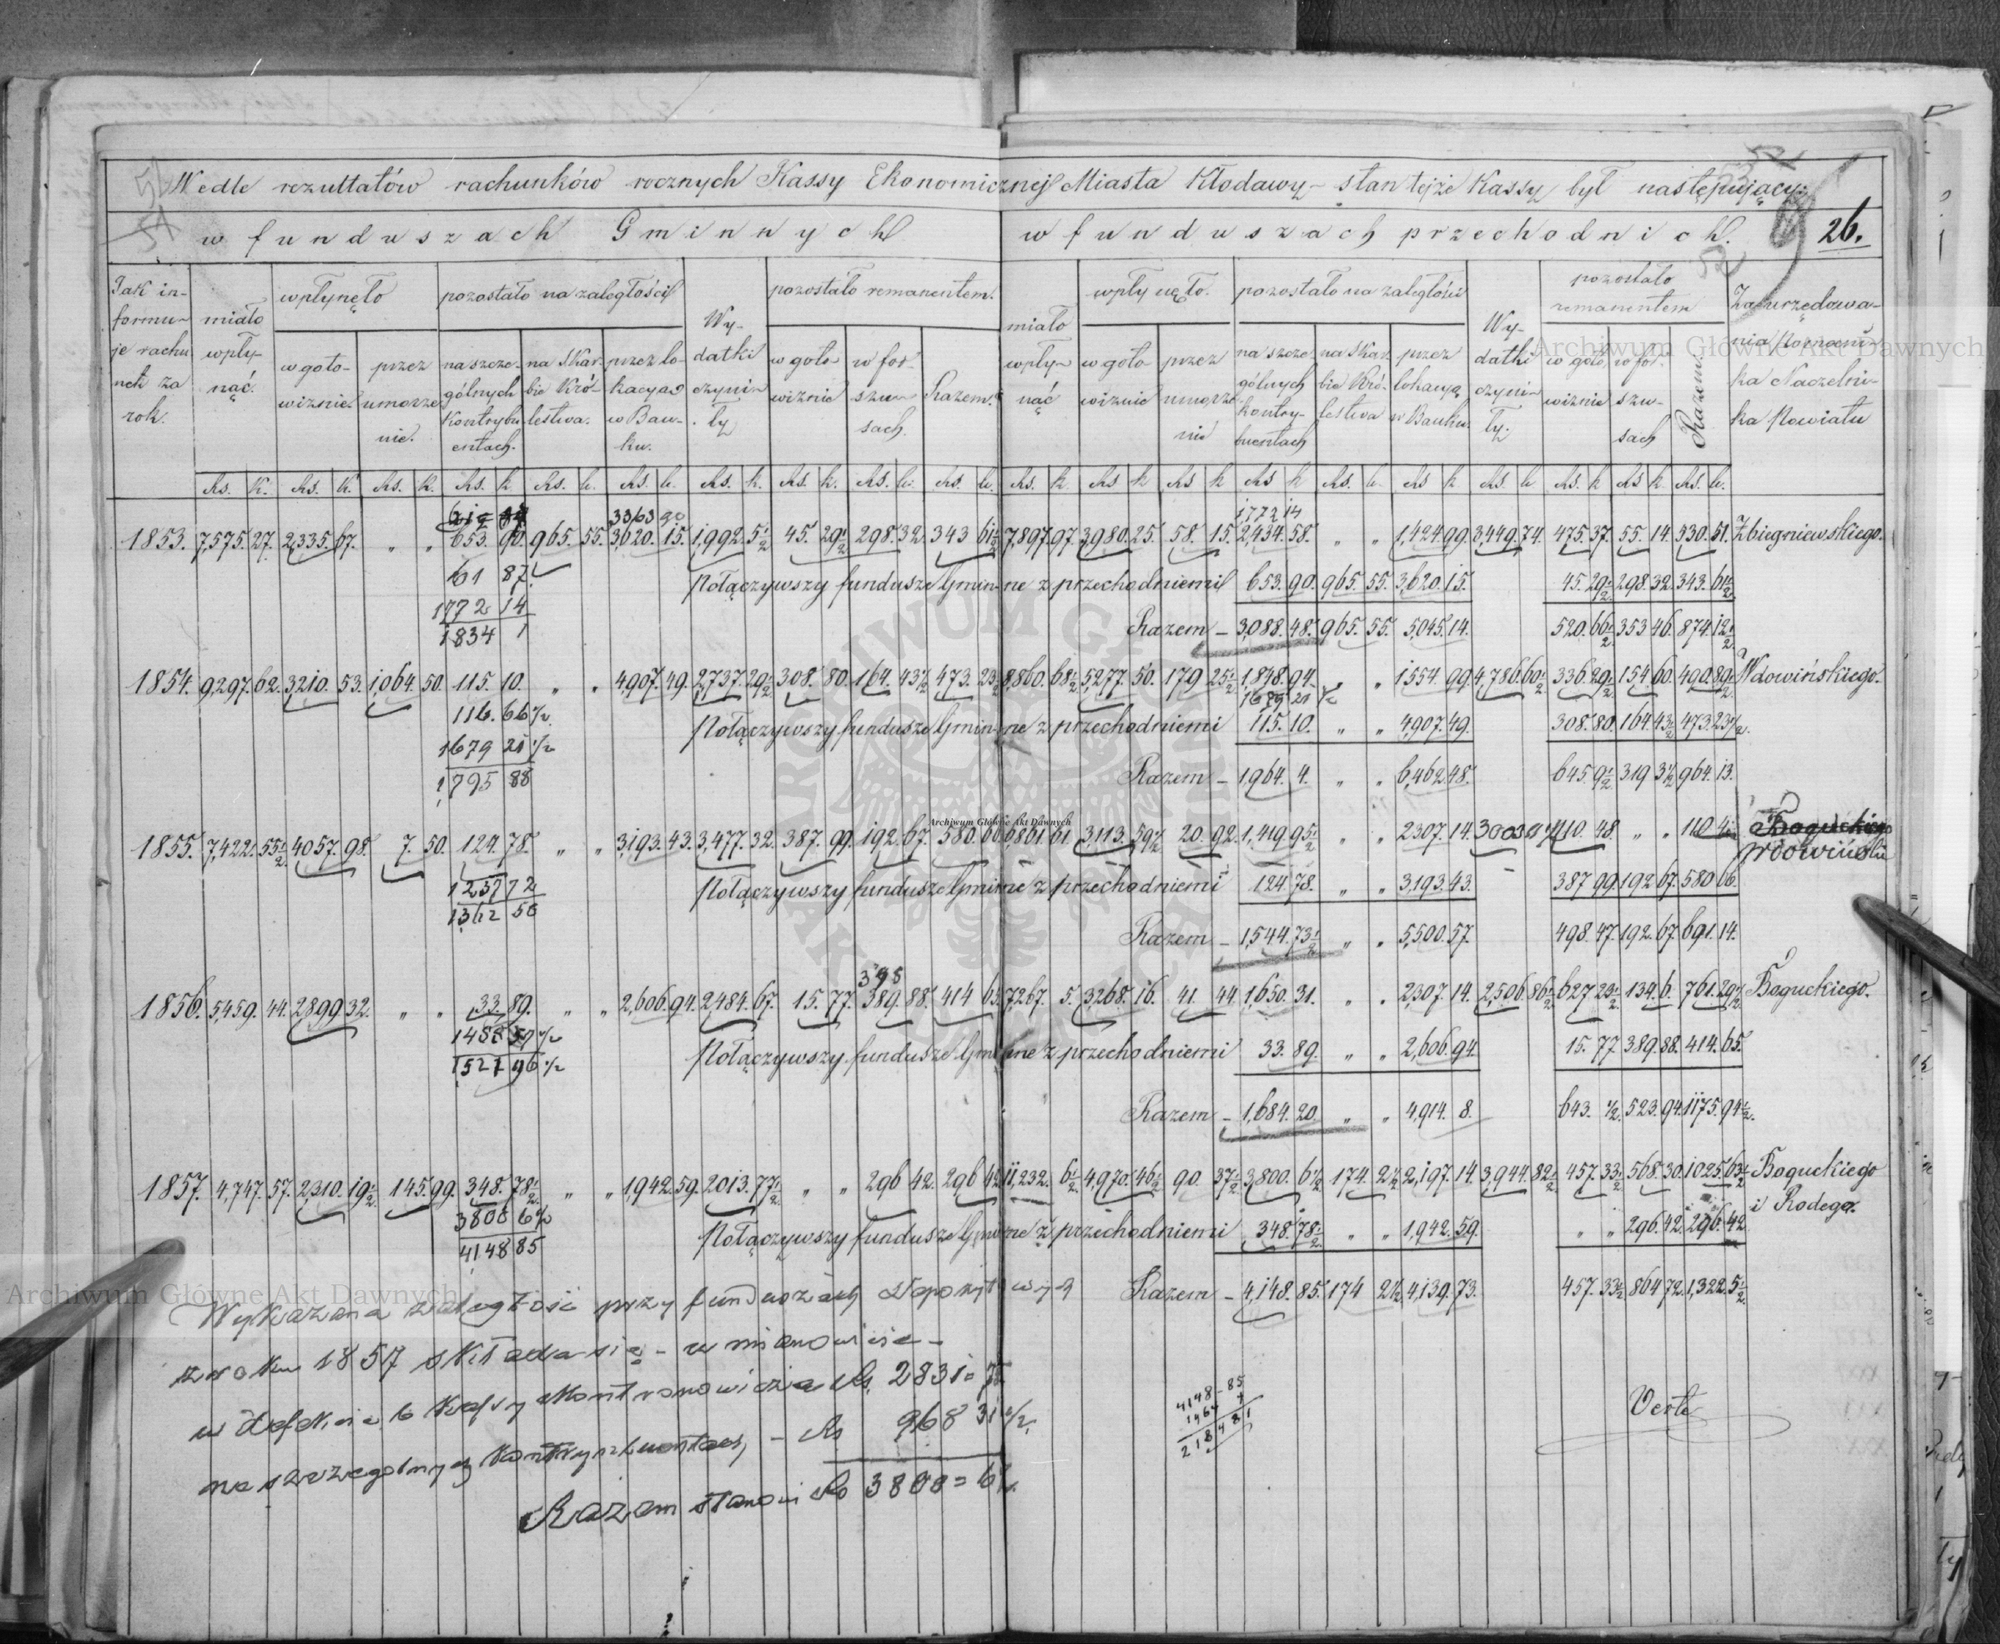 Wedle rezultatów rachunków rocznych Kassy Ekonomicznej Miasta Kłodawy – stan tejże Kassy był następujący:
w funduszach Gminnych
w funduszach przechodnich.
26.
Jak informuje rachunek za rok.
miało wpłynąć.
wpłynęło
w gotowiznie
przez umorzenie.
pozostało na zaległości
na szczególnych kontrybuentach.
na Skarbie Królestwa.
przez lokacyą w Banku.
Wydatki czyniły
pozostało remanentem.
w gotowiznie
w forszusach.
Razem.
miało wpłynąć
wpłynęło.
w gotowiznie
przez umorzenie
pozostało na zaległości
na szczególnych kontrybuentach
na Skarbie Królestwa
przez lokacyą w Banku
Wydatki czyniły.
pozostało remanentem
w gotowiznie
w forszusach
Razem.
Za urzędowania Pomocnika Naczelnika Powiatu
1853. 7,575. 27. 2,335. 67. „ „ 653. 90. 965. 55. 3,620. 15. 1,992. 5½ 45. 29½ 298. 32. 343 61½ 7,897. 97. 3,980. 25. 58. 15. 2,434. 58. „ „ 1,424. 99. 3,449. 74. 475. 37. 55. 14. 530. 51. Zbigniewskiego.
3363 90
1772 14
61 87.
1772 14
1834 1
Połączywszy fundusze Gminne z przechodniemi 653. 90. 965. 55. 3,620. 15. 45. 29½ 298. 32. 343. 61½
Razem – 3,088. 48. 965. 55. 5,045. 14. 520. 66½ 353 46. 874. 12½
1854. 9,297. 62. 3,210. 53. 1,064. 50. 115. 10. „ „ 4,907. 49. 2,737. 29½ 308. 80. 164. 43½ 473. 23½ 8,860. 68½ 5,277. 50. 179 25½ 1,848. 94. „ „ 1554 99. 4,786. 60½ 336. 29½ 154. 60. 490. 89½ Wdowińskiego.
1679 21 ½
116. 66½
1679 21 ½
1795 88
Połączywszy fundusze Gminne z przechodniemi 115. 10. „ „ 4,907. 49. 308. 80. 164. 43½ 473. 23½
Razem – 1,964. 4. „ „ 6,462. 48. 645. 9½ 319 3½ 964. 13.
1855. 7,422. 55½ 4,057. 98. 7. 50. 124. 78. „ „ 3,193. 43. 3,477. 32. 387. 99. 192. 67. 580. 66 6,861. 61. 3,113. 59½ 20. 92. 1,419. 95½ „ „ 2307. 14. 110. 48. „ „
Boguckiego
Wdowiński
1237 72
1362 50
Połączywszy fundusze Gminne z przechodniemi 124. 78. „ „ 3,193. 43. 387 99. 192 67. 580 66.
Razem – 1,544. 73½ „ „ 5,500. 57. 498. 47. 192. 67. 691. 14.
395
1856. 5,459. 44. 2,899 32. „ „ 33. 89. „ „ 2,606. 94. 2,484. 67. 15. 77. 389. 88. 414 65. 7,267. 5. 3,268. 16. 41. 44. 1,650. 31. „ „ 2,307. 14. 2,506. 86½ 627 23½ 134. 6. 761. 29½ Boguckiego.
1521 96 ½
Połączywszy fundusze Gminne z przechodniemi 33. 89. „ „ 2,606. 94. 15. 77. 389. 88. 414. 65.
Razem – 1,684. 20 „ „ 4,914. 8. 643. ½. 523. 94. 1175. 94½.
1857. 4,747. 57. 2,310. 19½ 145. 99. 348. 78½ „ „ 1,942. 59. 2013. 77½ „ „ 296 42. 296 42. 11,232. 6½ 4,970. 46½ 90. 37½ 3,800. 6½ 174. 2½ 2,197. 14. 3,944. 82½ 457. 33½ 568. 30. 1025. 63½ Boguckiego
i Rodego.
3800 6½
4148 85
Połączywszy fundusze Gminne z przechodniemi 348. 78½ „ „ 1,942. 59. „ „ 296. 42. 296. 42
Razem – 4,148. 85. 174 2½ 4,139. 73. 457. 33½ 864 72. 1,322. 5½
Wykazana zaległość przy funduszach Depozytowych
z roku 1857 składa się – w mianowicie –
w Defekcie b Kassy Rs. 2831 =
na szczególnych kontrybuentach – Rs 968 31 ½
Razem stanowi Rs 3800 = 6½
4148 – 85
Verte
Archiwum Główne Akt Dawnych
Archiwum Główne Akt Dawnych
Archiwum Główne Akt Dawnych